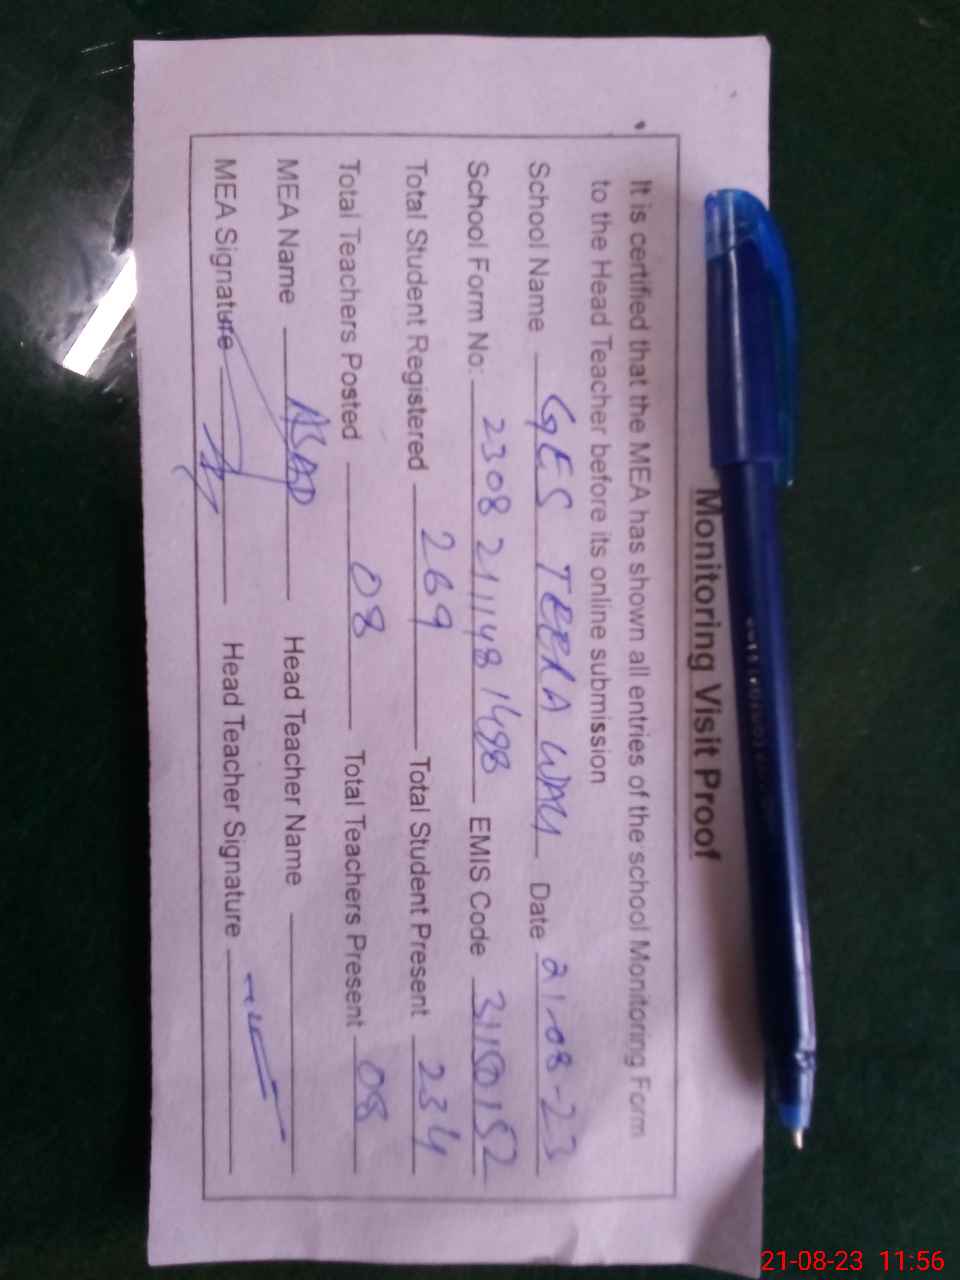 Monitoring Visit Proof
It is certified that the MEA has shown all entries of the school Monitoring Form
to the Head Teacher before its online submission
School Name GES TRRRA Date 21-08-23
School Form No: 2308 211148 1498 EMIS Code 31150152
Total Student Registered 269 Total Student Present 234
Total Teachers Posted 08 Total Teachers Present 08
MEA Name ASAD Head Teacher Name
MEA Signature Head Teacher Signature
21-08-23 11:56